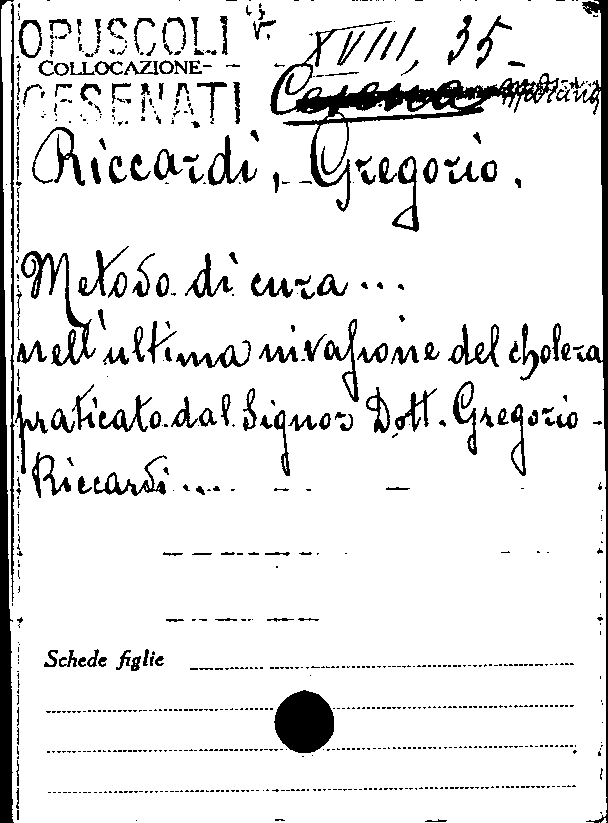 OPUSCOLI XVIII, 35
COLLOCAZIONE
CESENATI Cesena
Riccardi, Gregorio.
Metodo di cura ...
nell'ultima invasione del cholera
praticato dal Signor Dott. Gregorio
Riccardi ...
Schede figlie